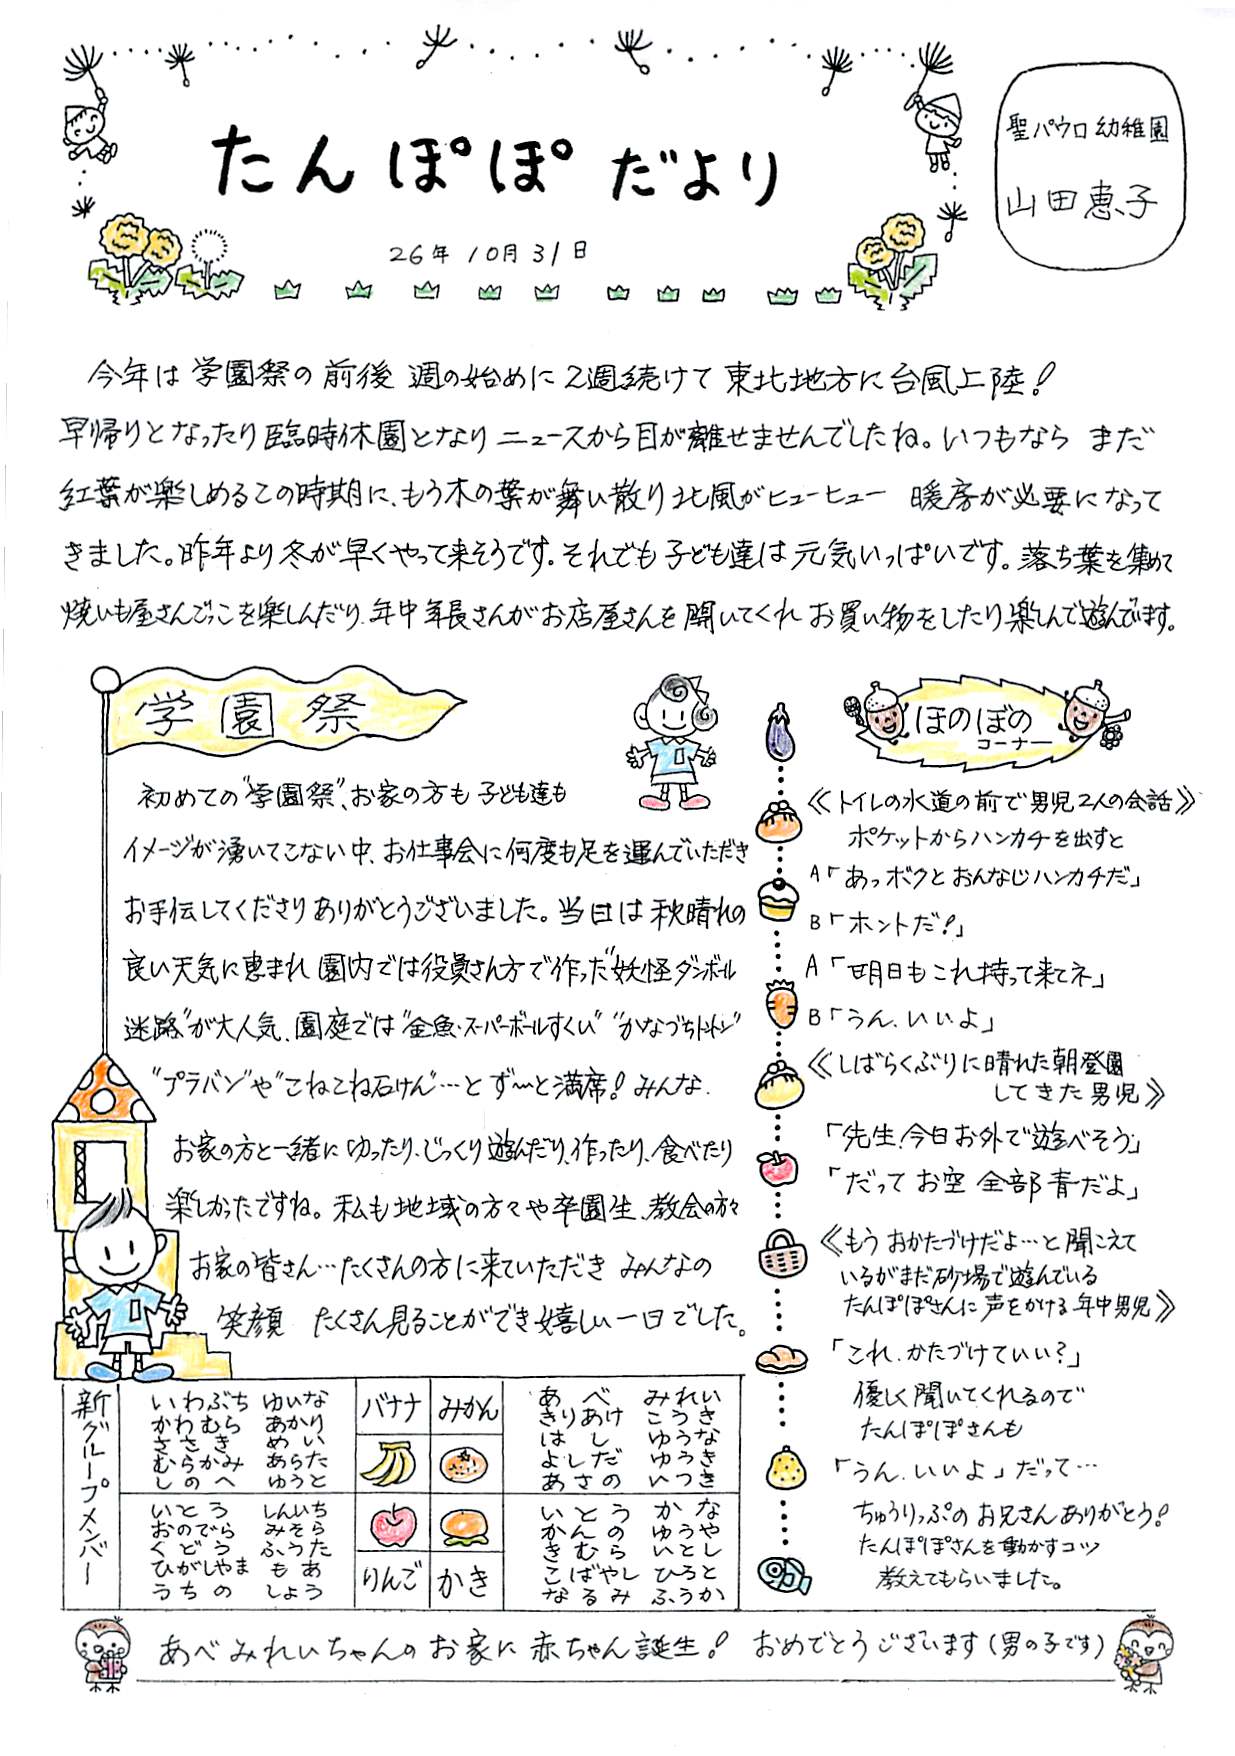 たんぽぽだより
26年10月31日
聖パウロ幼稚園
山田恵子
今年は学園祭の前後 週の始めに2週続けて東北地方に台風上陸!
早帰りとなったり臨時休園となりニュースから目が離せませんでしたね。いつもなら まだ
紅葉が楽しめるこの時期に、もう木の葉が舞い散り北風がヒューヒュー 暖房が必要になって
きました。昨年より冬が早くやって来そうです。それでも子ども達は元気いっぱいです。落ち葉を集めて
焼いも屋さんごっこを楽しんだり、年中年長さんがお店屋さんを開いてくれお買い物をしたり楽しんで遊んでいます。
学園祭
初めての"学園祭"、お家の方も子ども達も
イメージが湧いてこない中、お仕事会に何度も足を運んでいただき
お手伝してくださりありがとうございました。当日は秋晴れの
良い天気に恵まれ園内では役員さん方で作った"妖怪ダンボール
迷路"が大人気、園庭では"金魚・スーパーボールすくい" "かなづちトントン"
"プラバン"や"こねこね石けん"…とず〜っと満席!みんな、
お家の方と一緒にゆったり、じっくり遊んだり、作ったり、食べたり
楽しかったですね。私も地域の方々や卒園生、教会の方々
お家の皆さん…たくさんの方に来ていただきみんなの
笑顔 たくさん見ることができ嬉しい一日でした。
ほのぼの
コーナー
《トイレの水道の前で男児2人の会話》
ポケットからハンカチを出すと
A「あっボクとおんなじハンカチだ」
B「ホントだ!」
A「明日もこれ持って来てネ」
B「うん、いいよ」
《しばらくぶりに晴れた朝登園
してきた男児》
「先生!今日お外で遊べそう」
「だってお空全部青だよ」
《もうおかたづけだよ…と聞こえて
いるがまだ砂場で遊んでいる
たんぽぽさんに声をかける年中男児》
「これ、かたづけていい?」
優しく聞いてくれるので
たんぽぽさんも
「うん、いいよ」だって…
ちゅうりっぷのお兄さんありがとう!
たんぽぽさんを動かすコツ
教えてもらいました。
新グループメンバー
いわぶち ゆいな
かわむら あかり
ささき めい
むらかみ あらた
しのへ ゆうと
バナナ
みかん
あべ みれい
きりあけ こうき
はし ゆうな
よしだ ゆうき
あさの いつき
いとう しんいち
おのでら みそら
くどう ふうた
ひがしやま もあ
うちの しょう
りんご
かき
いとう かな
かんの ゆうや
きむら いとし
こばやし ひろと
なるみ ふうか
あべみれいちゃんのお家に赤ちゃん誕生! おめでとうございます(男の子です)